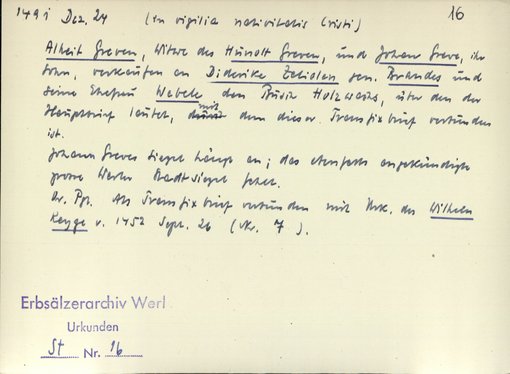 1491 Dez. 24 (in vigilia nativitatis Cristi) 16
Alheit Greven, Witwe des Hunolt Greven, und Johan Greve, ihr
Sohn, verkaufen an Diderike Zeliolen gen. Brandes und
seine Ehefrau Webele den Busch Holzwachs, über den der
Hauptbrief lautet, mit dem dieser Transfixbrief verbunden
ist.
Johann Greves Siegel hängt an; das ebenfalls angekündigte
grosse Werler Stadtsiegel fehlt.
Or. Pgt. Als Transfixbrief verbunden mit Urk. des Wilhelm
Keygge v. 1452 Sept. 26 (Nr. 7).
Erbsälzerarchiv Werl
Urkunden
St Nr. 16